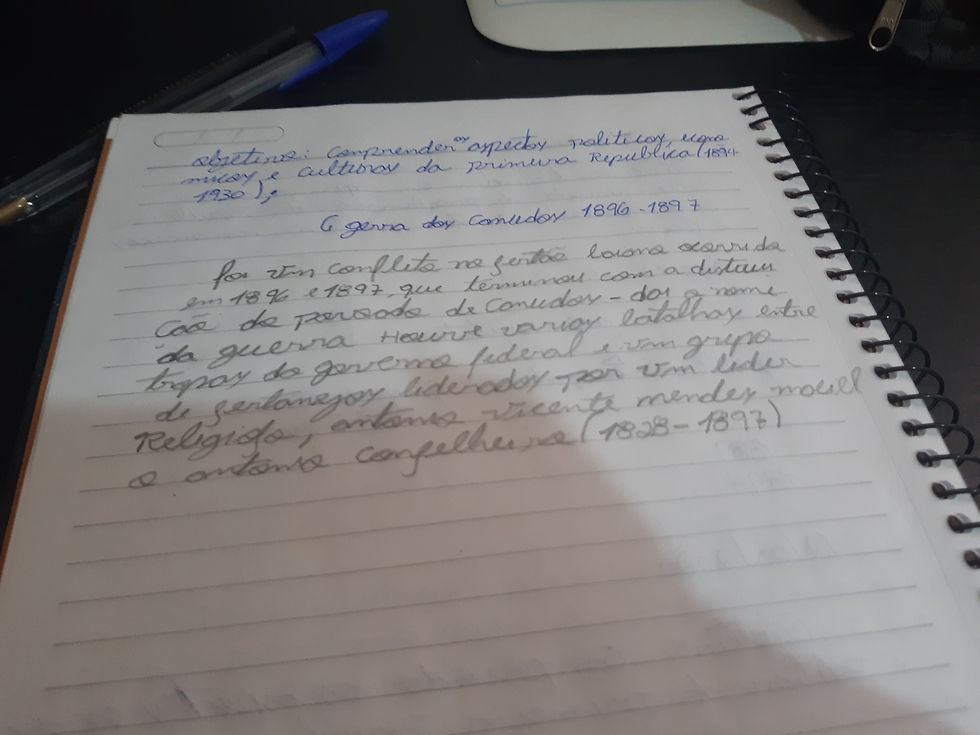 objetivo: Comprender os aspectos politicos, econo
micos e culturas da primeira Republica (1894-
1930);
G gerra dos Canudos 1896-1897
foi um conflito no sertão baiano ocorrido
em 1896 e 1897, que terminou com a distrui
ção do povoado de Canudos - dai o nome
da guerra Houve varias batalhas entre
tropas do governo federal e um grupo
de sertanejos liderados por um lider
Religioso, antonio Vicente mendes maciel
o antonio Conselheiro (1828-1897)